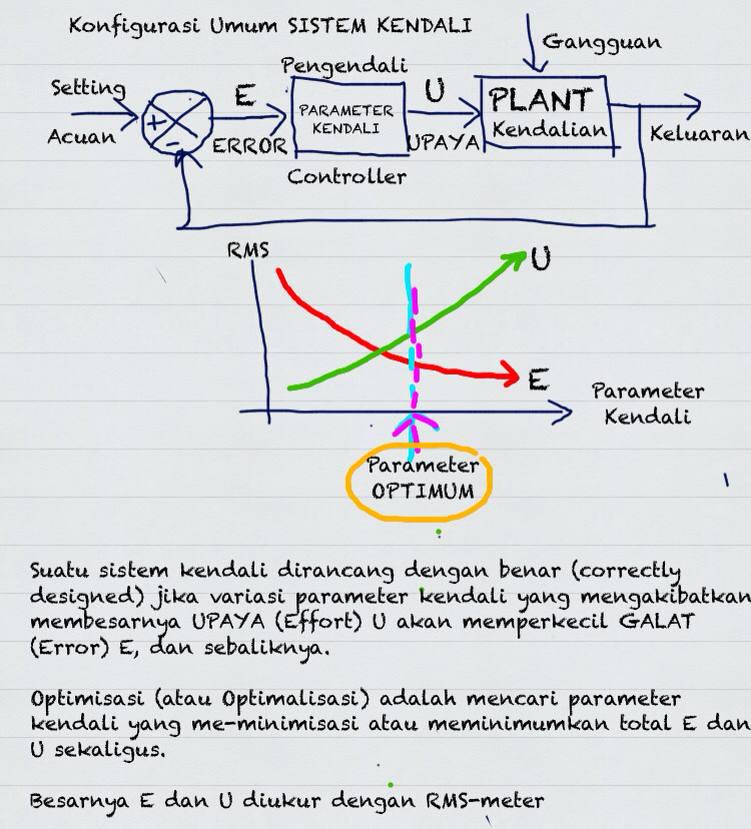 Konfigurasi Umum SISTEM KENDALI
Gangguan
Pengendali
Setting
E
U
PLANT
+
PARAMETER
KENDALI
Kendalian
Acuan
-
ERROR
UPAYA
Keluaran
Controller
RMS
U
E
Parameter
Kendali
Parameter
OPTIMUM
Suatu sistem kendali dirancang dengan benar (correctly
designed) jika variasi parameter kendali yang mengakibatkan
membesarnya UPAYA (Effort) U akan memperkecil GALAT
(Error) E, dan sebaliknya.
Optimisasi (atau Optimalisasi) adalah mencari parameter
kendali yang me-minimisasi atau meminimumkan total E dan
U sekaligus.
Besarnya E dan U diukur dengan RMS-meter